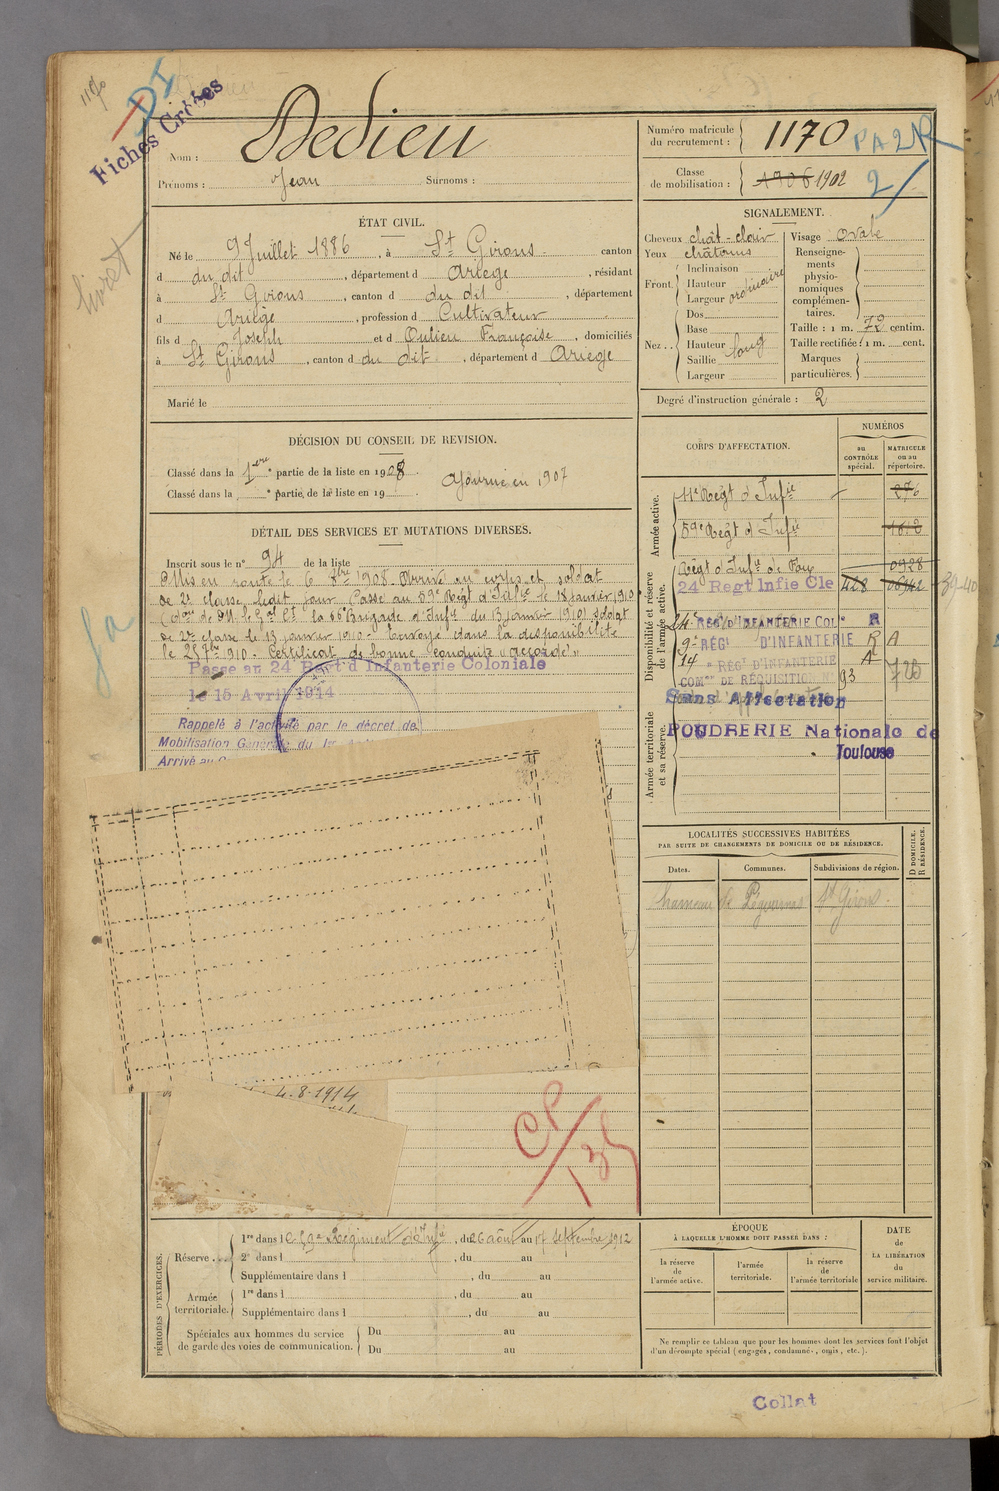 1170
DI
Fiches Créées
livret
Nom : Dedieu
Prénoms : Jean Surnoms :
Numéro matricule du recrutement : 1170 PA2R
Classe de mobilisation : 1906 1902 2/
ÉTAT CIVIL.
Né le 9 Juillet 1886, à St Girons canton
d du dit, département d Ariège, résidant
à St Girons, canton d du dit, département
d Ariège, profession d Cultivateur
fils d Joseph et d Oulieu Françoise, domiciliés
à St Girons, canton d du dit, département d Ariège
Marié le
SIGNALEMENT.
Cheveux chât-clair
Yeux châtains
Front. Inclinaison
Hauteur
Largeur ordinaire
Nez .. Dos
Base
Hauteur
Saillie long
Largeur
Visage ovale
Renseignements physionomiques complémentaires.
Taille : 1 m. 72 centim.
Taille rectifiée : 1 m. cent.
Marques particulières.
Degré d'instruction générale : 2
DÉCISION DU CONSEIL DE REVISION.
Classé dans la 1ère partie de la liste en 1908.
Classé dans la e partie de la liste en 19
Ajourné en 1907
DÉTAIL DES SERVICES ET MUTATIONS DIVERSES.
Inscrit sous le n° 94 de la liste
Mis en route le 6 8bre 1908. Arrivé au corps et soldat
de 2e classe ledit jour. Passé au 59e Régt d'Infie le 13 janvier 1910
la 66e Brigade d'Infie du 13 janvier 1910) soldat
de 2e classe le 13 janvier 1910. Envoyé dans la disponibilité
le 25 7bre 1910. Certificat de bonne conduite "accordé"
Passé au 24 Regt d'Infanterie Coloniale
le 15 Avril 1914
Rappelé à l'activité par le décret de
Mobilisation Générale du 1er
Arrivé au
4.8.1914
CORPS D'AFFECTATION.
NUMÉROS
au CONTRÔLE spécial.
MATRICULE ou au répertoire.
Armée active.
11e Régt d'Infie 276
59e Régt d'Infie 1612
Disponibilité et réserve de l'armée active.
Régt d'Infie de Foix 0928
24 Regt Infie Cle 428
39-40
24e REG. D'INFANTERIE COLe R
9e RÉGt D'INFANTERIE R A
14 e RÉGt D'INFANTERIE A
COMon DE RÉQUISITION 93 725
Armée territoriale et sa réserve.
Sans Affectation
POUDRERIE Nationale de
Toulouse
LOCALITÉS SUCCESSIVES HABITÉES
PAR SUITE DE CHANGEMENTS DE DOMICILE OU DE RÉSIDENCE.
Dates. Communes. Subdivisions de région.
D DOMICILE. R RÉSIDENCE.
hameau de St Girons.
PÉRIODES D'EXERCICES.
Réserve ... 1re dans le 59e Régiment d'Infie, du 26 août au 17 septembre 1912
2e dans l , du au
Supplémentaire dans l , du au
Armée territoriale. 1re dans l , du au
Supplémentaire dans l , du au
Spéciales aux hommes du service de garde des voies de communication. Du au
Du au
ÉPOQUE
À LAQUELLE L'HOMME DOIT PASSER DANS :
la réserve de l'armée active.
l'armée territoriale.
la réserve de l'armée territoriale
DATE DE LA LIBÉRATION du service militaire.
Ne remplir ce tableau que pour les hommes dont les services font l'objet
d'un décompte spécial (engagés, condamnés, omis, etc.).
Collat